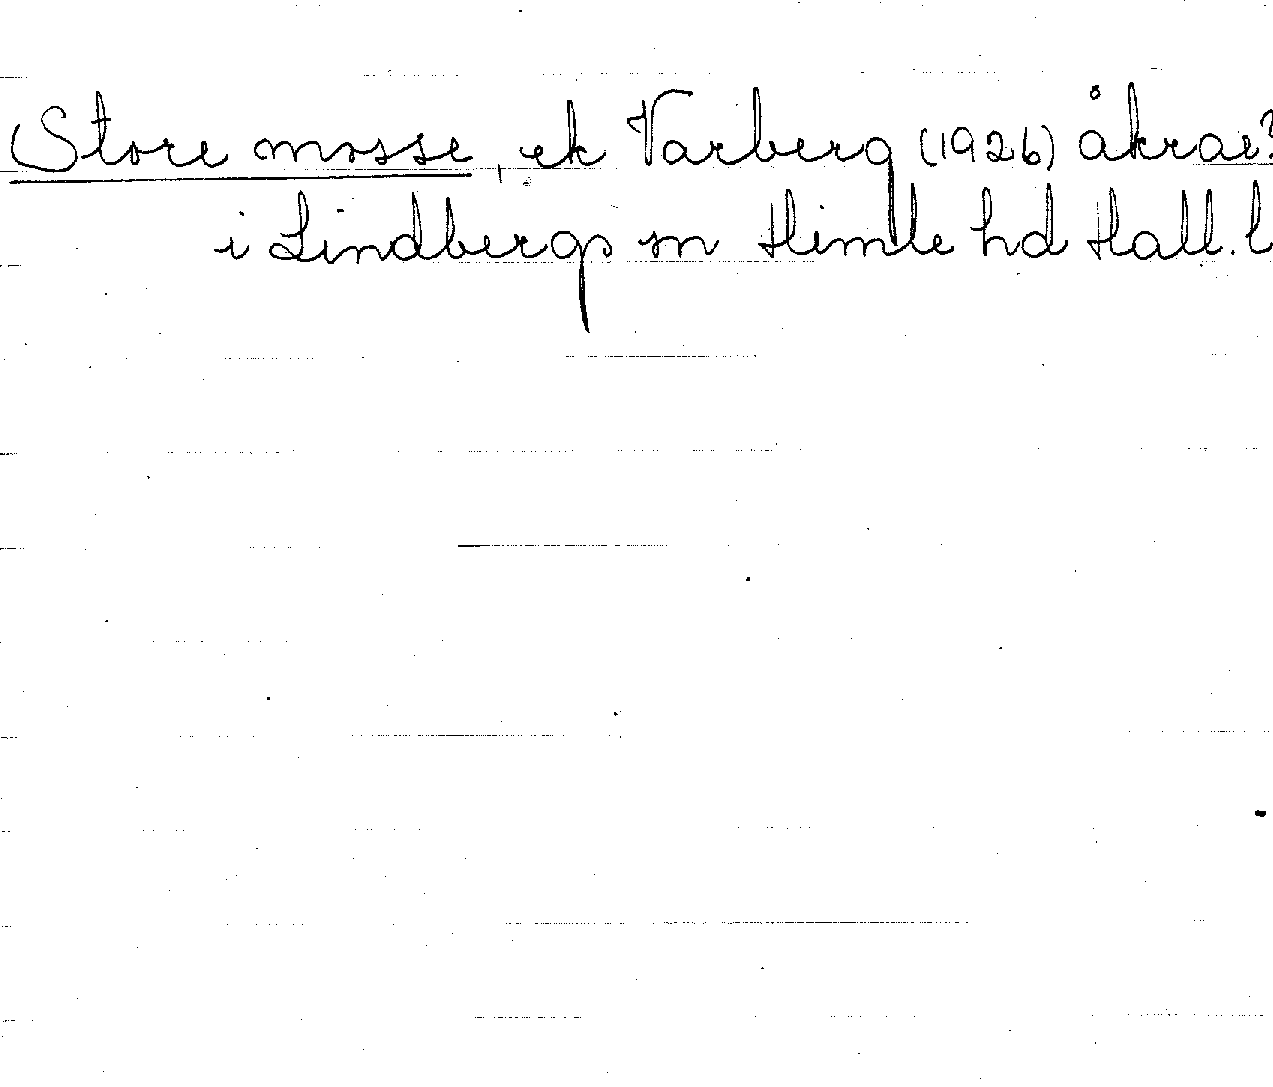 Store mosse, ek Varberg (1926) åkrar?
i Lindbergs sn Himle hd Hall. l